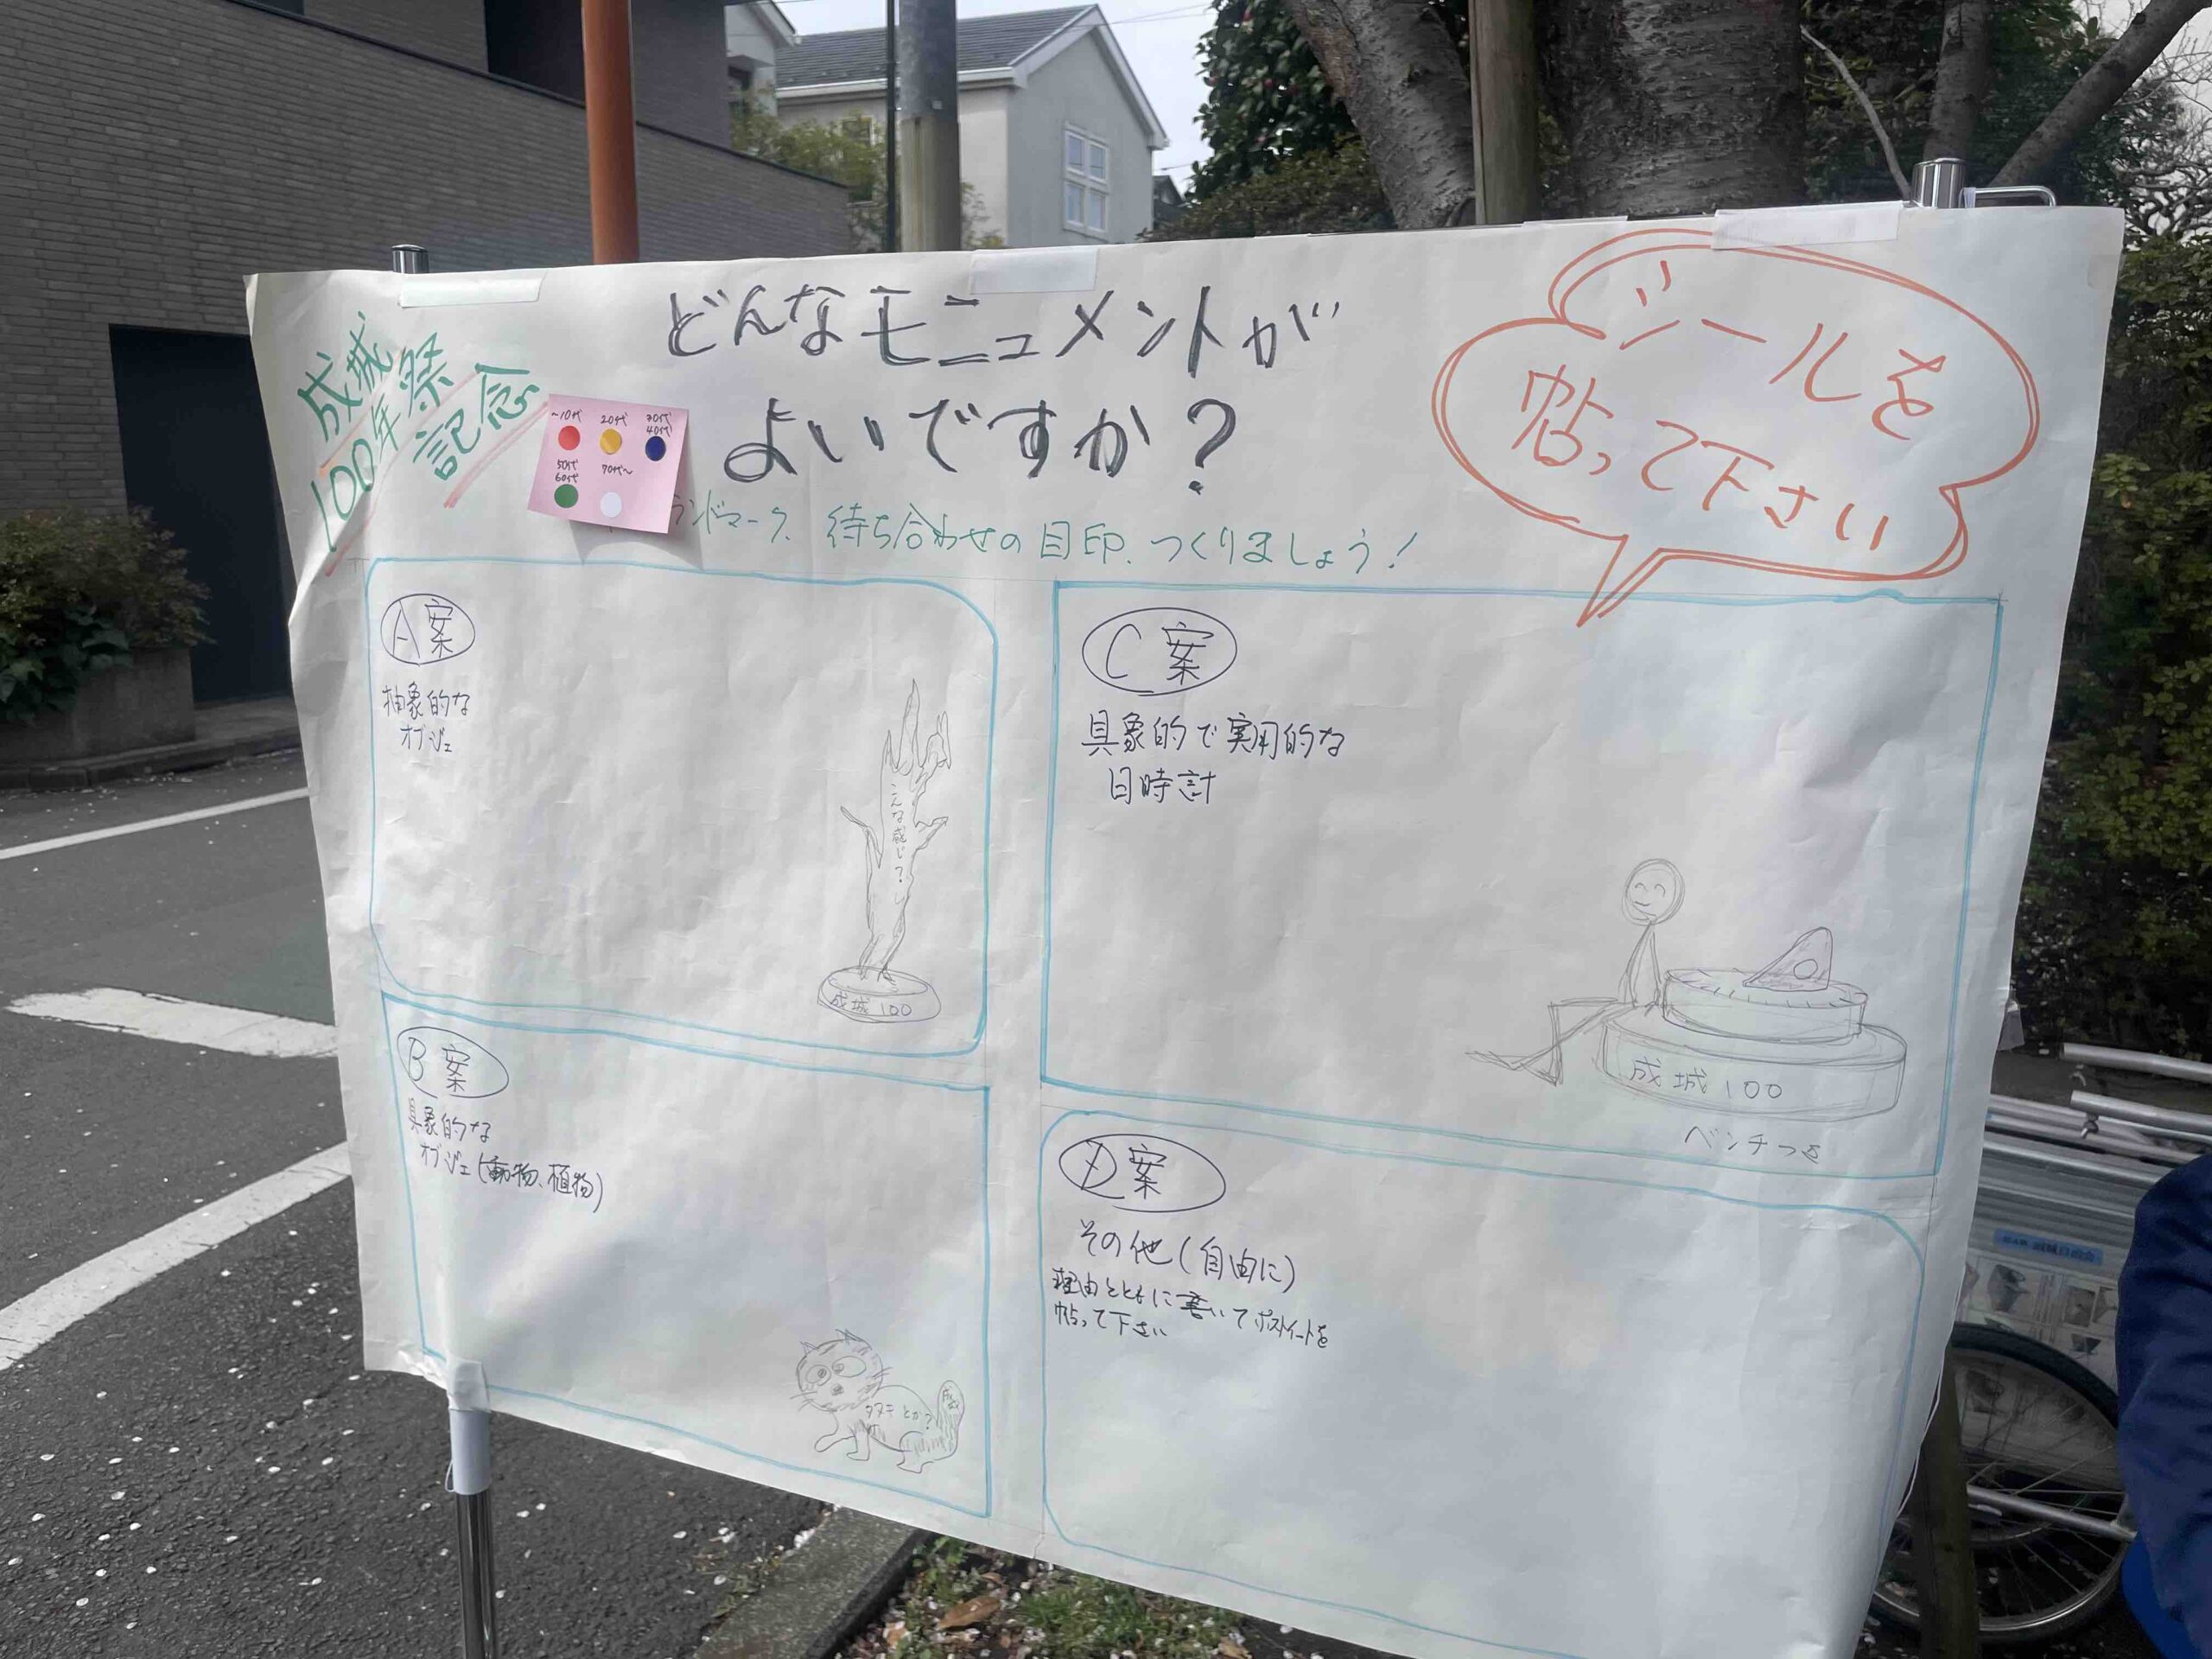 成城
100年祭
記念
どんなモニュメントが
よいですか？
シールを
帖って下さい
〜10代
20代
30代
40代
50代
60代
70代〜
ランドマーク、待ち合わせの目印、つくりましょう！
A案
抽象的な
オブジェ
こんな感じ？
成城100
B案
具象的な
オブジェ(動物、植物)
タヌキとか？
C案
具象的で実用的な
日時計
成城100
ベンチつき
D案
その他(自由に)
理由とともに書いてポストイートを
帖って下さい